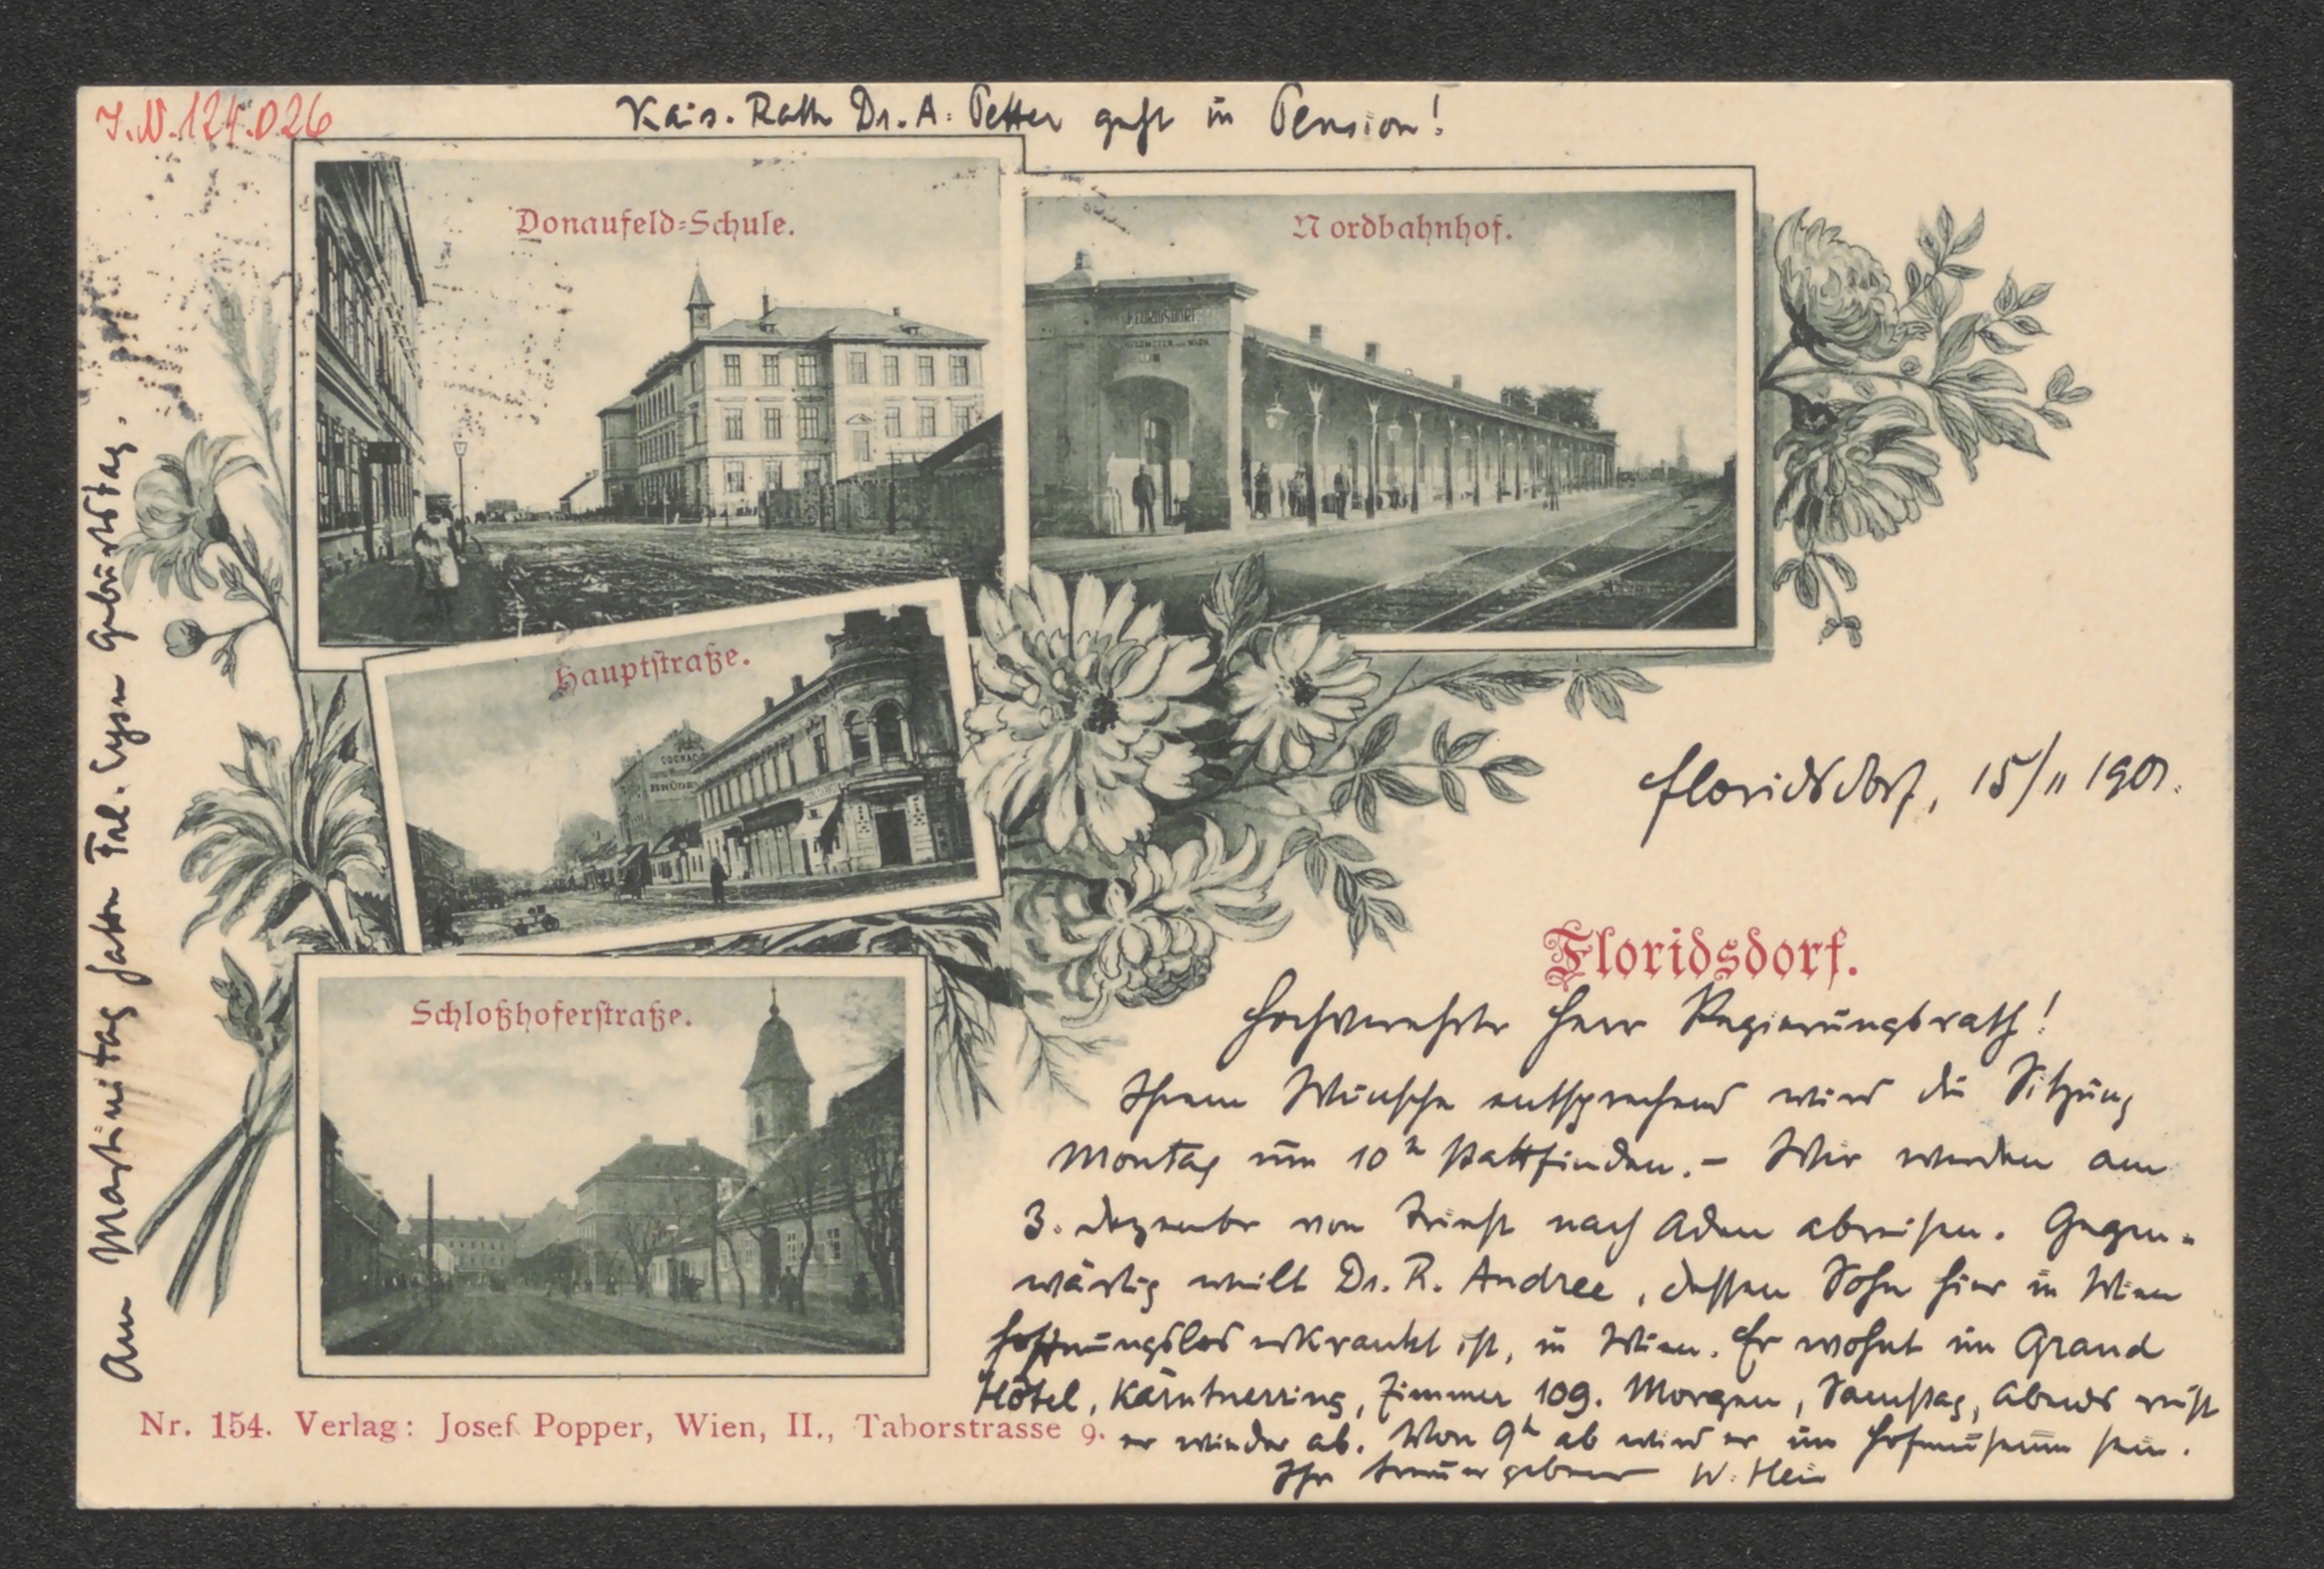 J.N.124.026
Kais. Rath Dr. A. Petter geht in Pension!
Donaufeld-Schule.
Nordbahnhof.
FLORIDSDORF
Hauptstraße.
COGNAC
BRÜDER
Floridsdorf, 15/11 1901.
Floridsdorf.
Schloßhoferstraße.
Hochverehrter Herr Regierungsrath!
Ihrem Wunsche entsprechend wird die Sitzung
Montag um 10h stattfinden. – Wir werden am
3. Dezember von Triest nach Aden abreisen. Gegen-
wärtig weilt Dr. R. Andree, dessen Sohn hier in Wien
hoffnungslos erkrankt ist, in Wien. Er wohnt im Grand
Hôtel, Kärntnerring, Zimmer 109. Morgen, Samstag, Abends reist
er wieder ab. Von 9h ab wird er im Hofmuseum sein.
Ihr treuergebener W. Hein
Am Martinitag hatte Frl. Eysn Geburtstag.
Nr. 154. Verlag: Josef Popper, Wien, II., Taborstrasse 9.